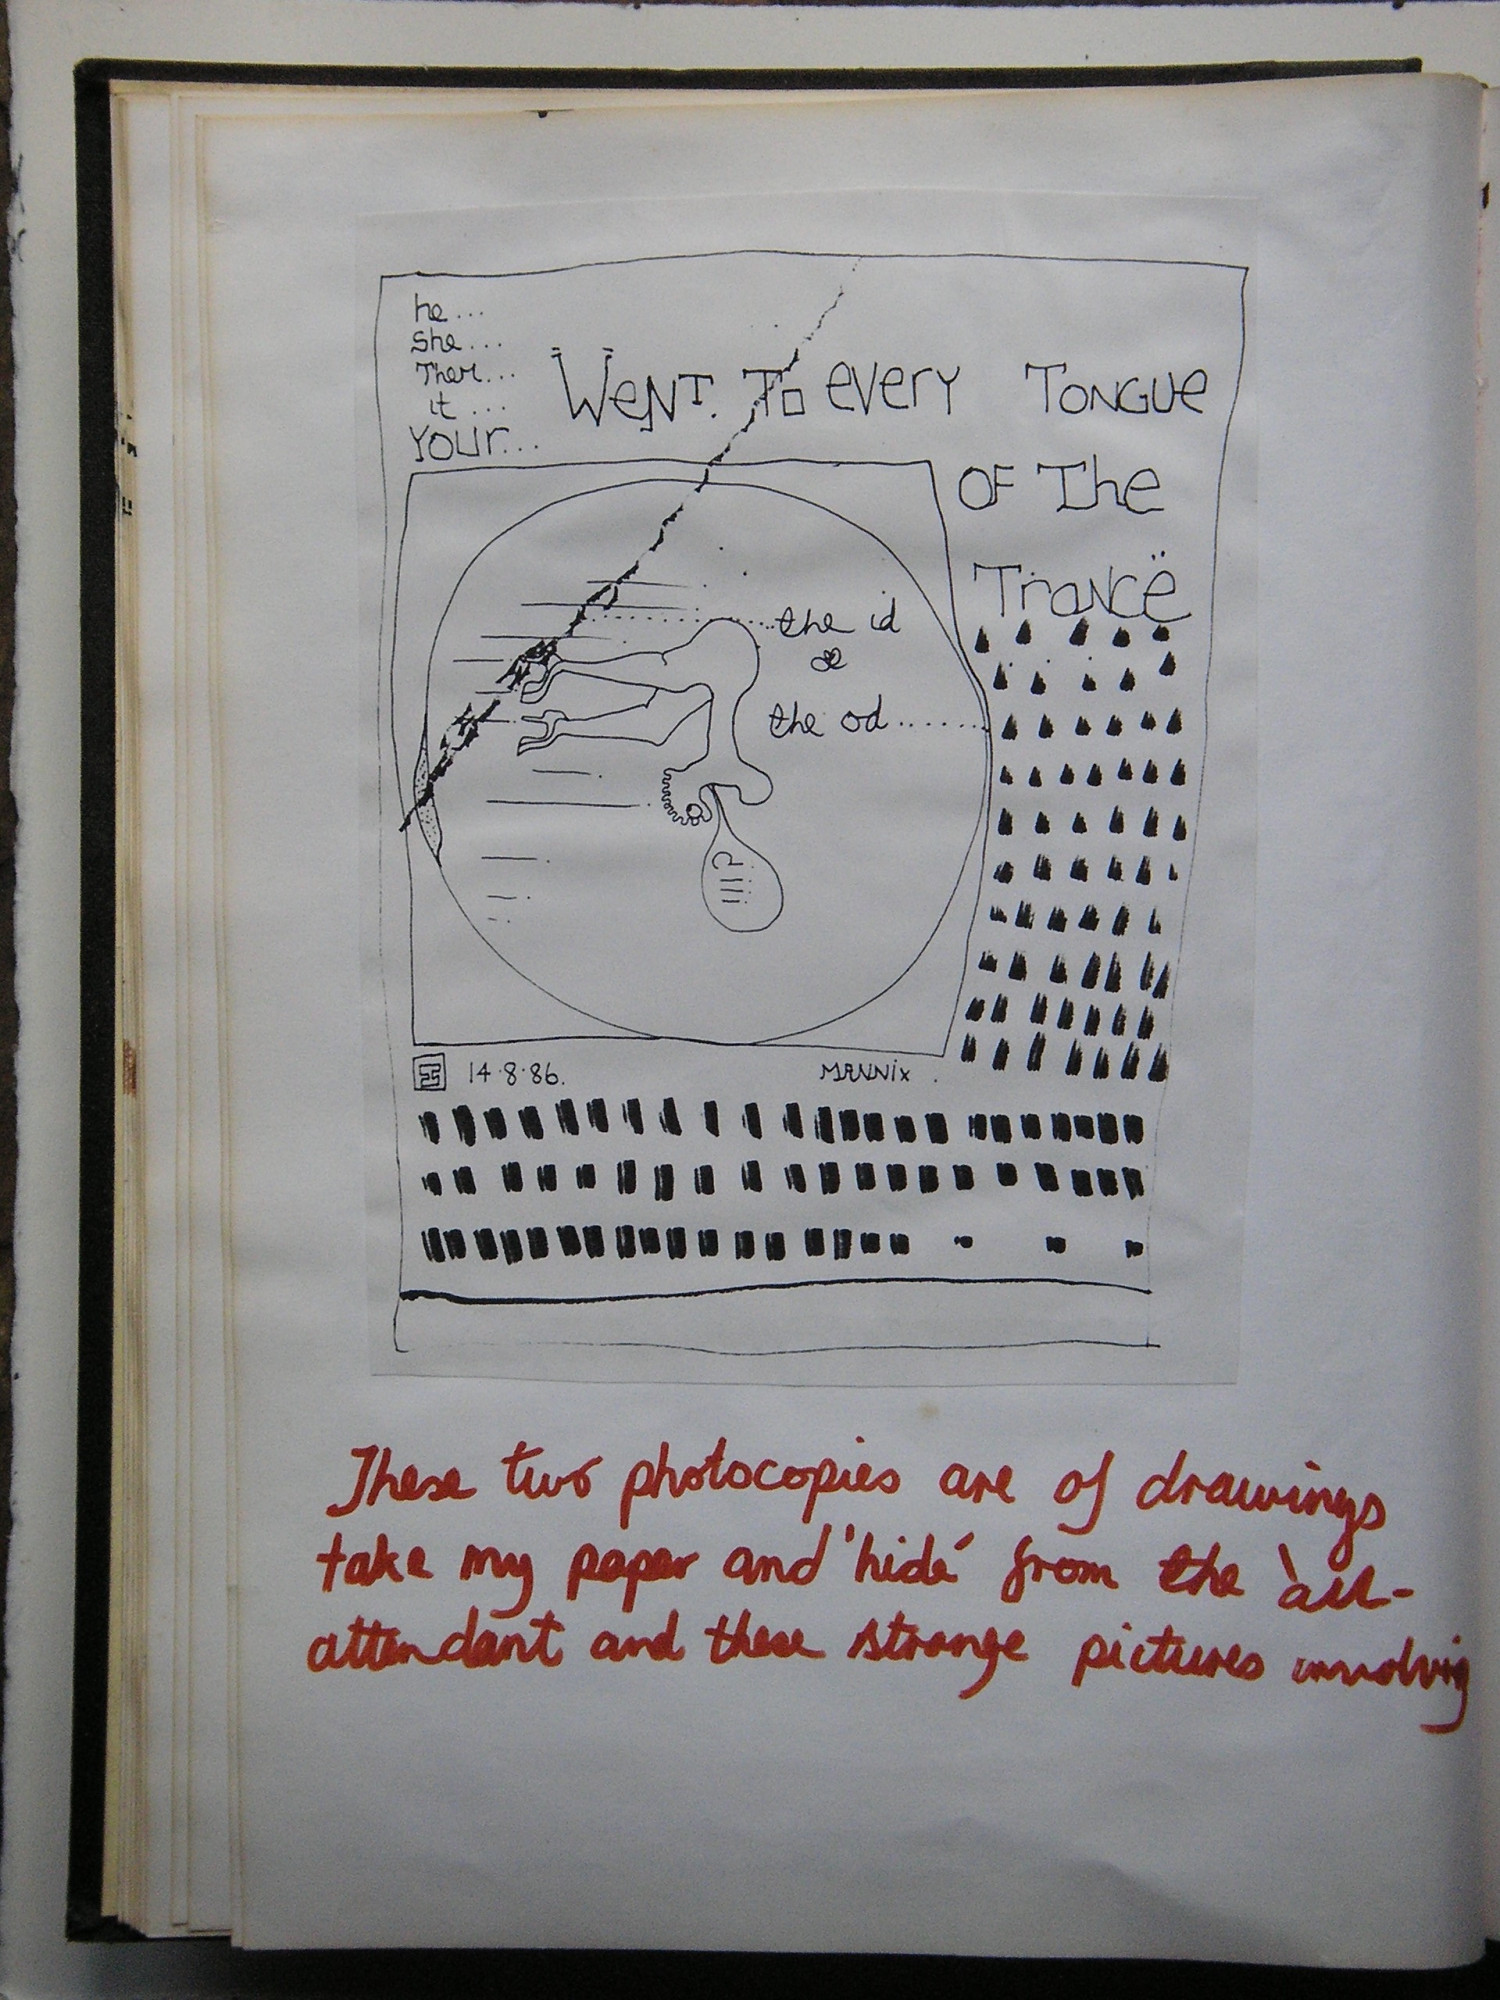 he...
she...
Their...
it ...
YOUR...
WENT. TO every TONGUE
OF The
Trancë
the id
&
the od
14.8.86.
MANNIX.
These two photocopies are of drawings
take my paper and 'hide' from the 'all-
attendant and these strange pictures involving